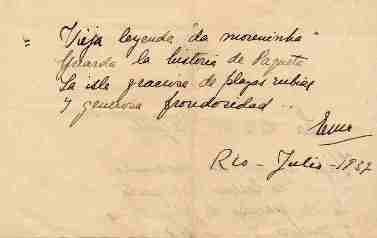 = Vieja leyenda "da moreninha"
Guarda la historia de Paqueta
La isla graciosa de playas rubias
y generosa frondosidad ..
Rio - Julio - 1937